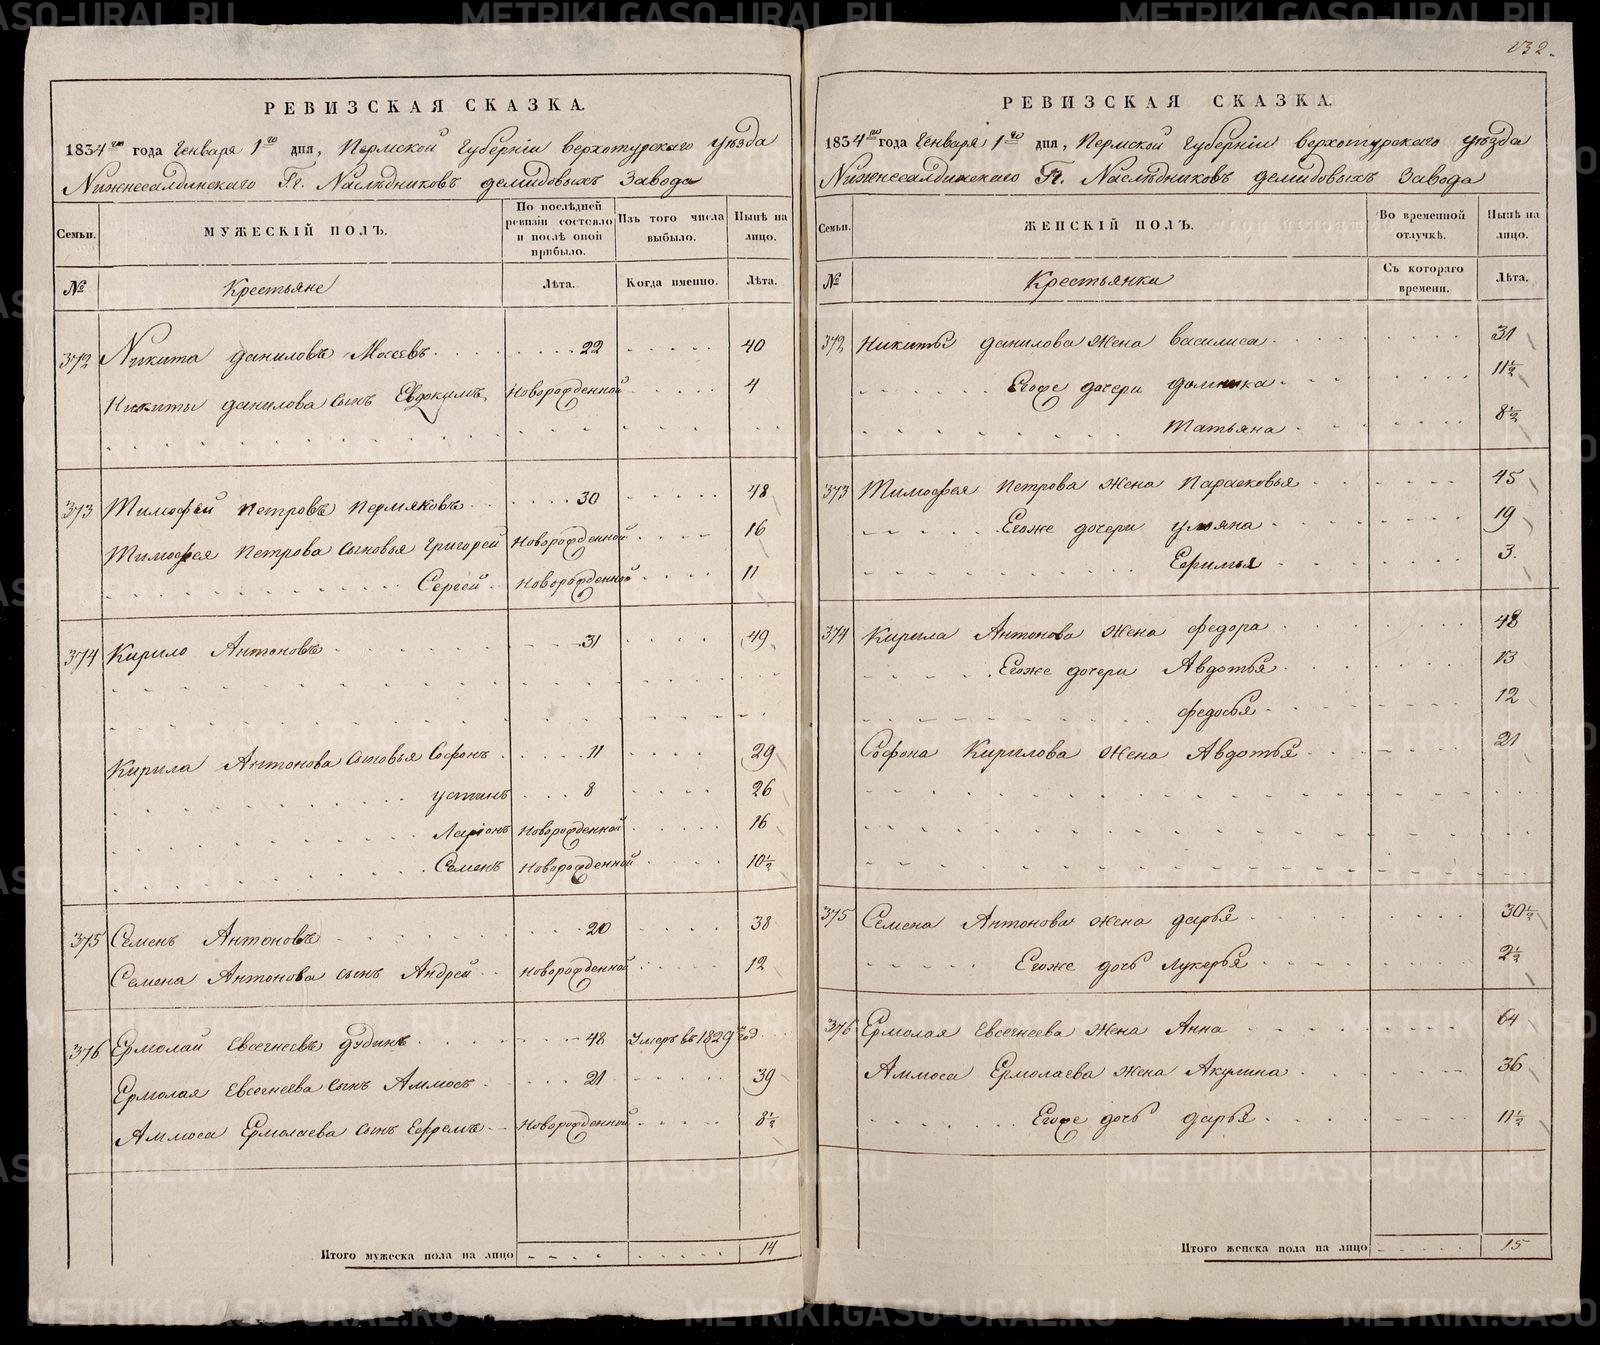 132.
РЕВИЗСКАЯ СКАЗКА.
1834го года Генваря 1го дня, Пермской Губерніи Верхотурскаго уѣзда
Нижнесалдинскаго Гг. Наслѣдниковъ Демидовыхъ Завода
Семьи. МУЖЕСКІЙ ПОЛЪ. По послѣдней ревизіи состояло и послѣ оной прибыло. Изъ того числа выбыло. Нынѣ на лицо.
№ Крестьяне Лѣта. Когда именно. Лѣта.
372 Никита Даниловъ Мосеевъ 22 40
Никиты Данилова сынъ Евдокимъ Новорожденной 4
373 Тимофей Петровъ Пермяковъ 30 48
Тимофея Петрова сыновья Григорей Новорожденной 16
Сергей Новорожденной 11
374 Кирило Антоновъ 31 49
Кирила Антонова сыновья Софонъ 11 29
Устинъ 8 26
Ларіонъ Новорожденной 16
Семенъ Новорожденной 10½
375 Семенъ Антоновъ 20 38
Семена Антонова сынъ Андрей Новорожденной 12
376 Ермолай Евсегнеевъ Дудинъ 48 Умеръ въ 1829 год
Ермолая Евсегнеева сынъ Аммосъ 21 39
Аммоса Ермолаева сынъ Ефремъ Новорожденной 8½
Итого мужеска пола на лицо 14
РЕВИЗСКАЯ СКАЗКА.
1834го года Генваря 1го дня, Пермской Губерніи Верхотурскаго уѣзда
Нижнесалдинскаго Гг. Наслѣдниковъ Демидовыхъ Завода
Семьи. ЖЕНСКІЙ ПОЛЪ. Во временной отлучкѣ. Нынѣ на лицо.
№ Крестьянки Съ котораго времени. Лѣта.
372 Никиты Данилова жена Василиса 31
Егоже дочери Домника 11½
Татьяна 8½
373 Тимофея Петрова жена Парасковья 45
Егоже дочери Ульяна 19
Ефимья 3.
374 Кирила Антонова жена Федора 48
Егоже дочери Авдотья 13
Федосья 12
Софона Кирилова жена Авдотья 21
375 Семена Антонова жена Дарья 30½
Егоже дочь Лукерья 2½
376 Ермолая Евсегнеева жена Анна 64
Аммоса Ермолаева жена Акулина 36
Егоже дочь Дарья 11½
Итого женска пола на лицо 15
METRIKI.GASO-URAL.RU